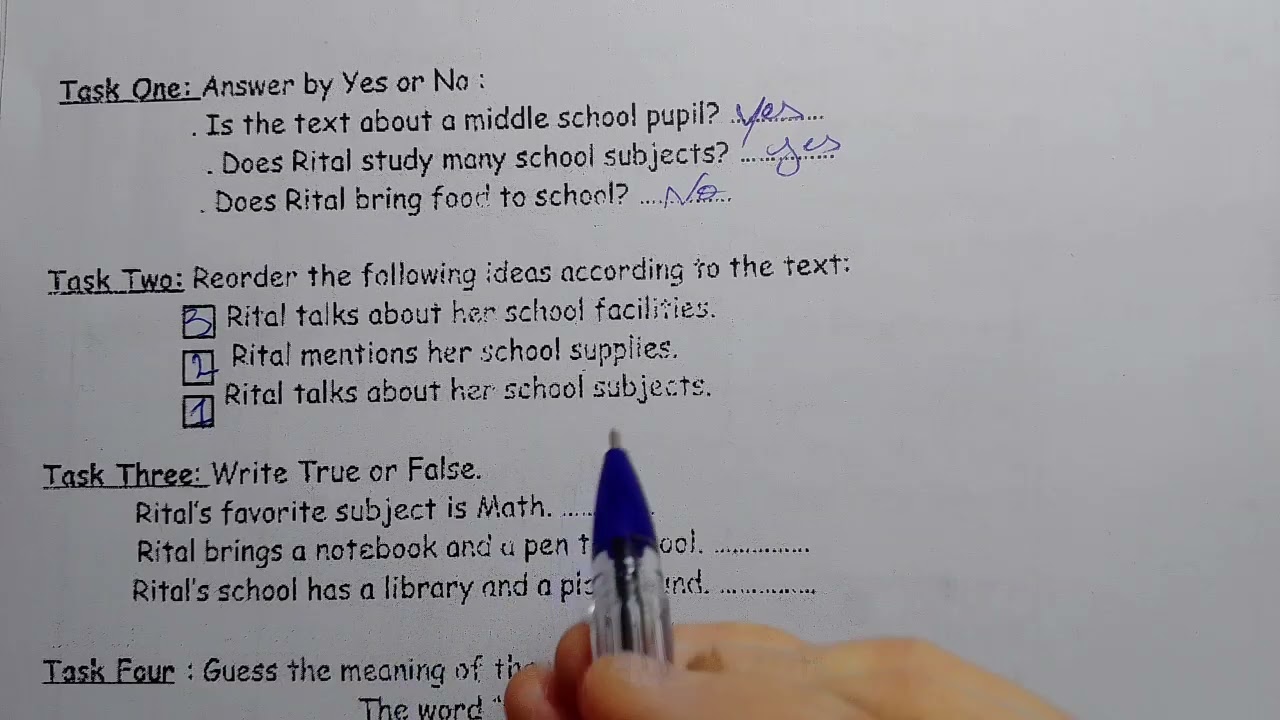 Task One: Answer by Yes or No :
. Is the text about a middle school pupil? ...yes......
. Does Rital study many school subjects? ......yes......
. Does Rital bring food to school? ....No....
Task Two: Reorder the following ideas according to the text:
3 Rital talks about her school facilities.
2 Rital mentions her school supplies.
1 Rital talks about her school subjects.
Task Three: Write True or False.
Rital's favorite subject is Math. .....
Rital brings a notebook and a pen ..............
Rital's school has a library and a ..............
Task Four : Guess the meaning of
The word "